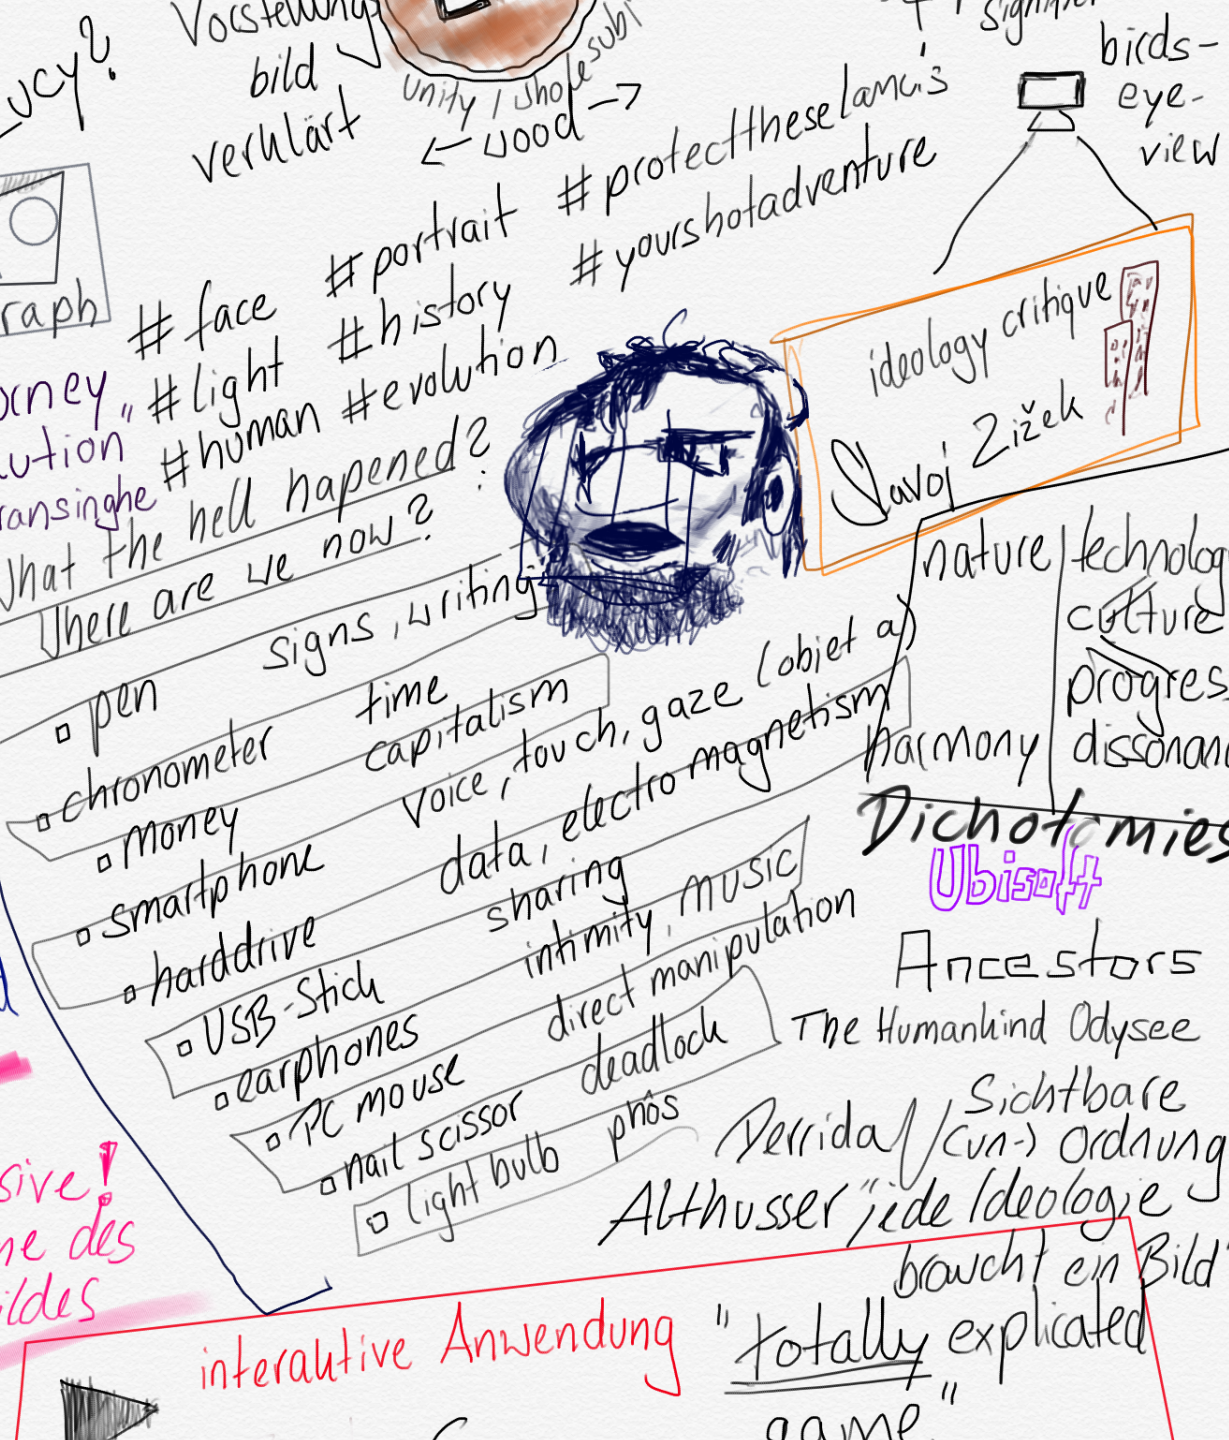 Vorstellungs
bild
verklärt
unity / whole subj
← wood →
birds-
eye-
view
ucy?
raph
#portrait #protecttheselands
#face #history #yourshotadventure
#light #evolution
#human
What the hell hapened?
Where are we now?
ideology critique
Slavoj Žižek
nature
technolog
culture
progres
harmony
dissonan
Dichotomies
Ubisoft
Ancestors
The Humankind Odysee
pen signs, writing
chronometer time
money capitalism
smartphone voice, touch, gaze (objet a)
harddrive data, electro magnetism
USB-Stick sharing
earphones intimity, music
PC mouse direct manipulation
nail scissor deadlock
light bulb phôs
Derrida / Sichtbare
(un-) Ordnung
Althusser "jede Ideologie
braucht ein Bild"
sive!
ne des
ildes
interaktive Anwendung
"totally explicated
game"